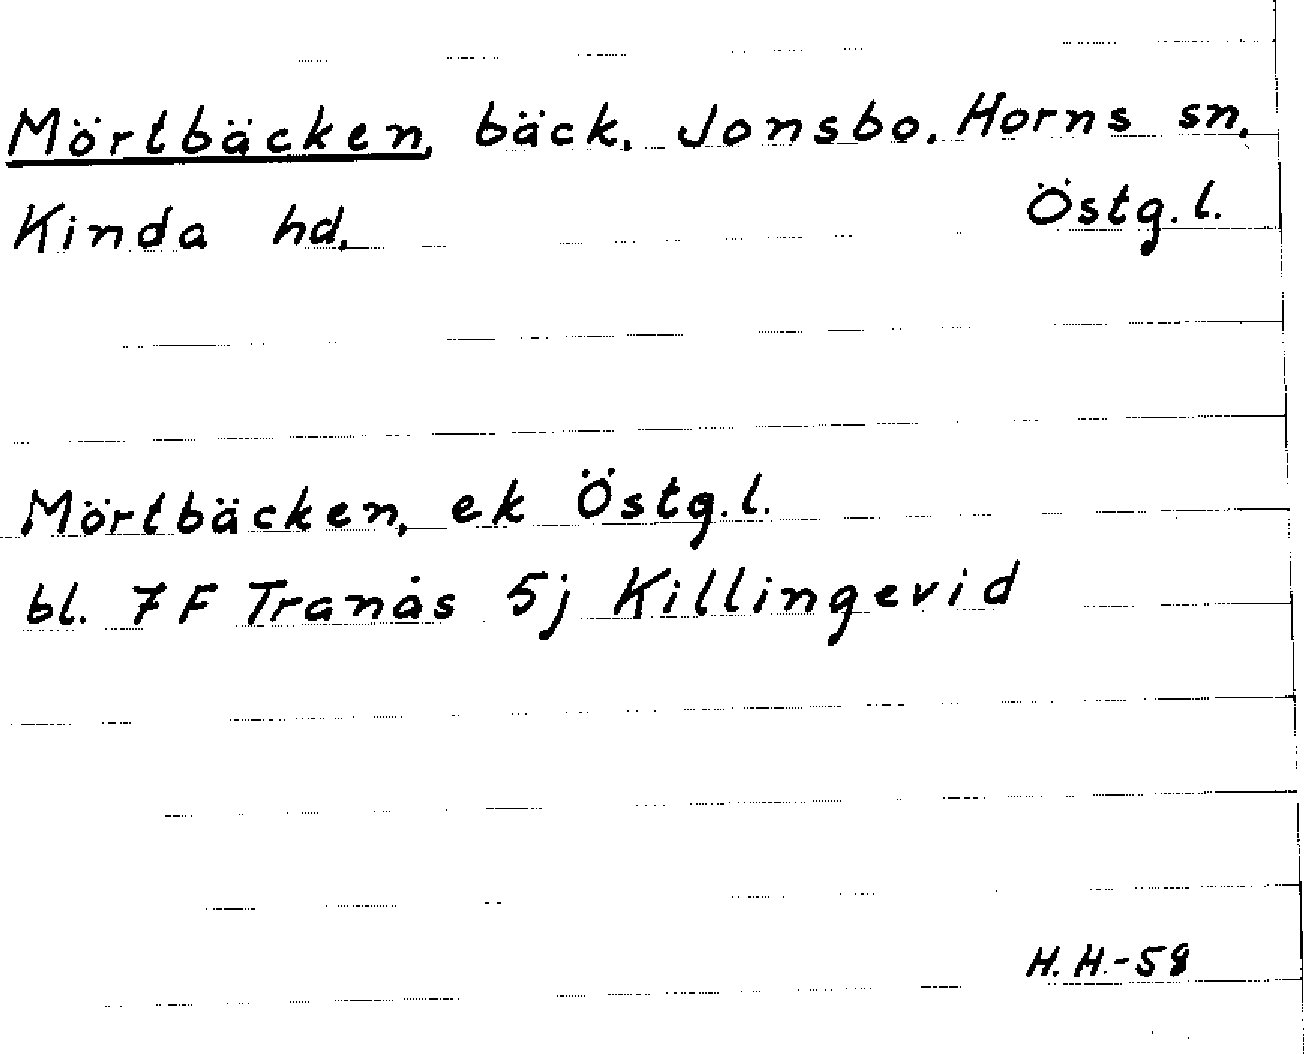 Mörtbäcken, bäck, Jonsbo, Horns sn,
Kinda hd, Östg.l.
Mörtbäcken, ek Östg.l.
bl. 7 F Tranås 5j Killingevid
H. H.-58